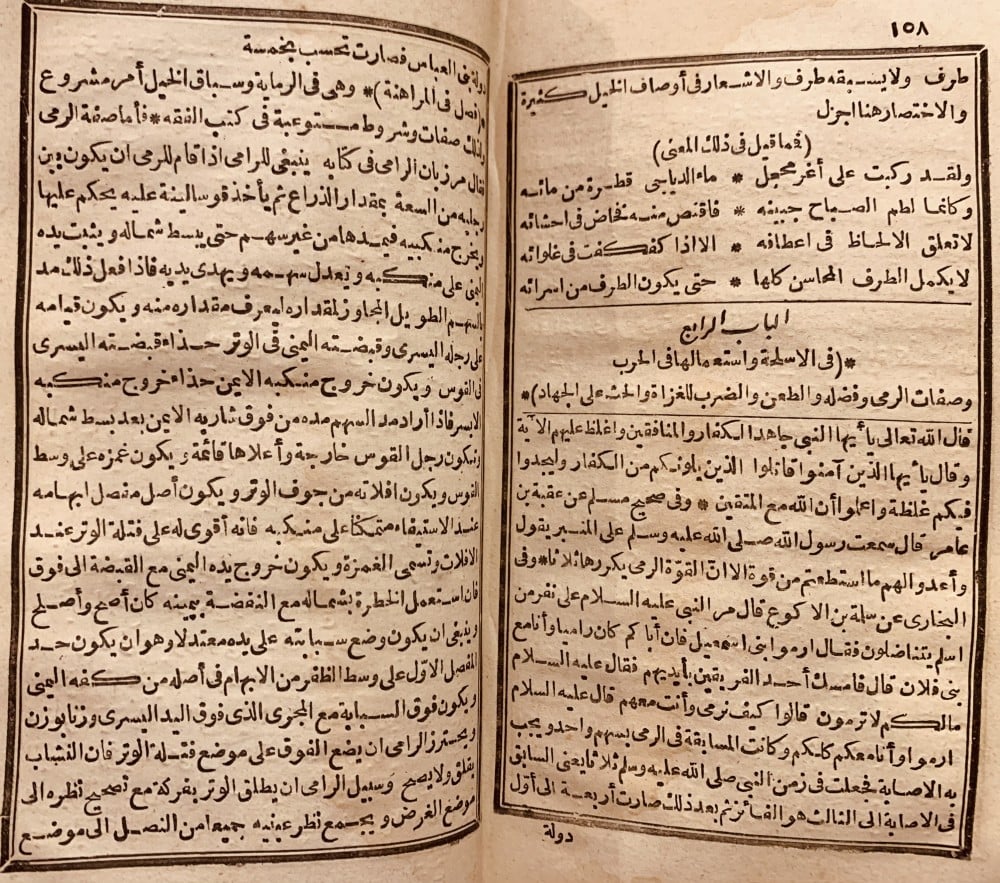 ١٥٨
طرف ولا يسبقه طرف والاشعار في أوصاف الخيل كثيرة
والاختصار هنا اجزل
(فما قيل في ذلك المعنى)
ولقد ركبت على أغر محجل * ماء الدياسى قطرة من مائه
وكانما لطم الصباح جبينه * فاقتص منه فخاض في احشائه
لا تعلق الالحاظ في اعطافه * الا اذا كفكفت في غلوائه
لا يكمل الطرف المحاسن كلها * حتى يكون الطرف من اسرائه
الباب الرابع
*(في الاسلحة واستعمالها في الحرب
وصفات الرمي وفضله والطعن والضرب للغزاة والحث على الجهاد)*
قال الله تعالى يأيها النبي جاهد الكفار والمنافقين واغلظ عليهم الآية
وقال يأيها الذين آمنوا قاتلوا الذين يلونكم من الكفار وليجدوا
فيكم غلظة واعلموا أن الله مع المتقين * وفي صحيح مسلم عن عقبة بن
عامر قال سمعت رسول الله صلى الله عليه وسلم على المنبر يقول
وأعدوا لهم ما استطعتم من قوة الا ان القوة الرمي يكررها ثلاثا * وفي
البخاري عن سلمة بن الاكوع قال مر النبي عليه السلام على نفر من
اسلم يتناضلون فقال ارموا بني اسمعيل فان أباكم كان راميا وأنا مع
بني فلان قال فامسك أحد الفريقين بأيديهم فقال عليه السلام
مالكم لا ترمون قالوا كيف نرمي وأنت معهم قال عليه السلام
ارموا وأنا معكم كلكم وكانت المسابقة في الرمي بسهم واحد ويجب
به الاصابة فجعلت في زمن النبي صلى الله عليه وسلم ثلاثا يعني السابق
في الاصابة الى الثالث هو الفائز ثم بعد ذلك صارت أربعة الى أول
دولة
دولة بني العباس فصارت تحسب بخمسة
*(فصل في المراهنة)* وهي في الرماية وسباق الخيل أمر مشروع
ولذلك صفات وشروط مستوعبة في كتب الفقه * فأما صفة الرمي
فقال مرزبان الرامي في كتابه ينبغي للرامي اذا قام للرمي ان يكون بين
رجليه من السعة بمقدار الذراع ثم يأخذ قوسا لينة عليه يحكم عليها
ويخرج منكبيه فيمدها من غير سهم حتى يبسط شماله ويثبت يده
اليمنى على منكبيه وتعدل سهمه ويهدي يديه فاذا فعل ذلك مد
بالسهم الطويل المجاوز لمقداره ليعرف مقداره منه ويكون قيامه
على رجله اليسرى وقبضته اليمنى في الوتر حذاء قبضته اليسرى
في القوس ويكون خروج منكبه الايمن حذاء خروج منكبه
الايسر فاذا أراد مد السهم مده من فوق شاربه الايمن بعد بسط شماله
وتكون رجل القوس خارجة وأعلاها قائمة ويكون غمزه على وسط
القوس ويكون افلاته من جوف الوتر ويكون أصل مفصل ابهامه
عند الاستيفاء متمكنا على منكبه فانه أقوى له على فتلة الوتر عند
الافلات وتسمى الغمزة ويكون خروج يده اليمنى مع القبضة الى فوق
فان استعمل الخطرة بشماله مع النفضة بيمينه كان أصح وأصلح
وينبغي ان يكون وضع سبابته على يده معتدلا وهو ان يكون حد
المفصل الاول على وسط الظفر من الابهام في أصله من كفه اليمنى
ويكون فوق السبابة مع المجرى الذي فوق اليد اليسرى وزنا بوزن
ويحترز الرامي ان يضع الفوق على موضع فتلة الوتر فان النشاب
يقلق ولا يصح وسبيل الرامي ان يطلق الوتر بفركة مع تصحيح نظره الى
موضع الغرض ويجمع نظر عينيه جميعا من النصل الى موضع